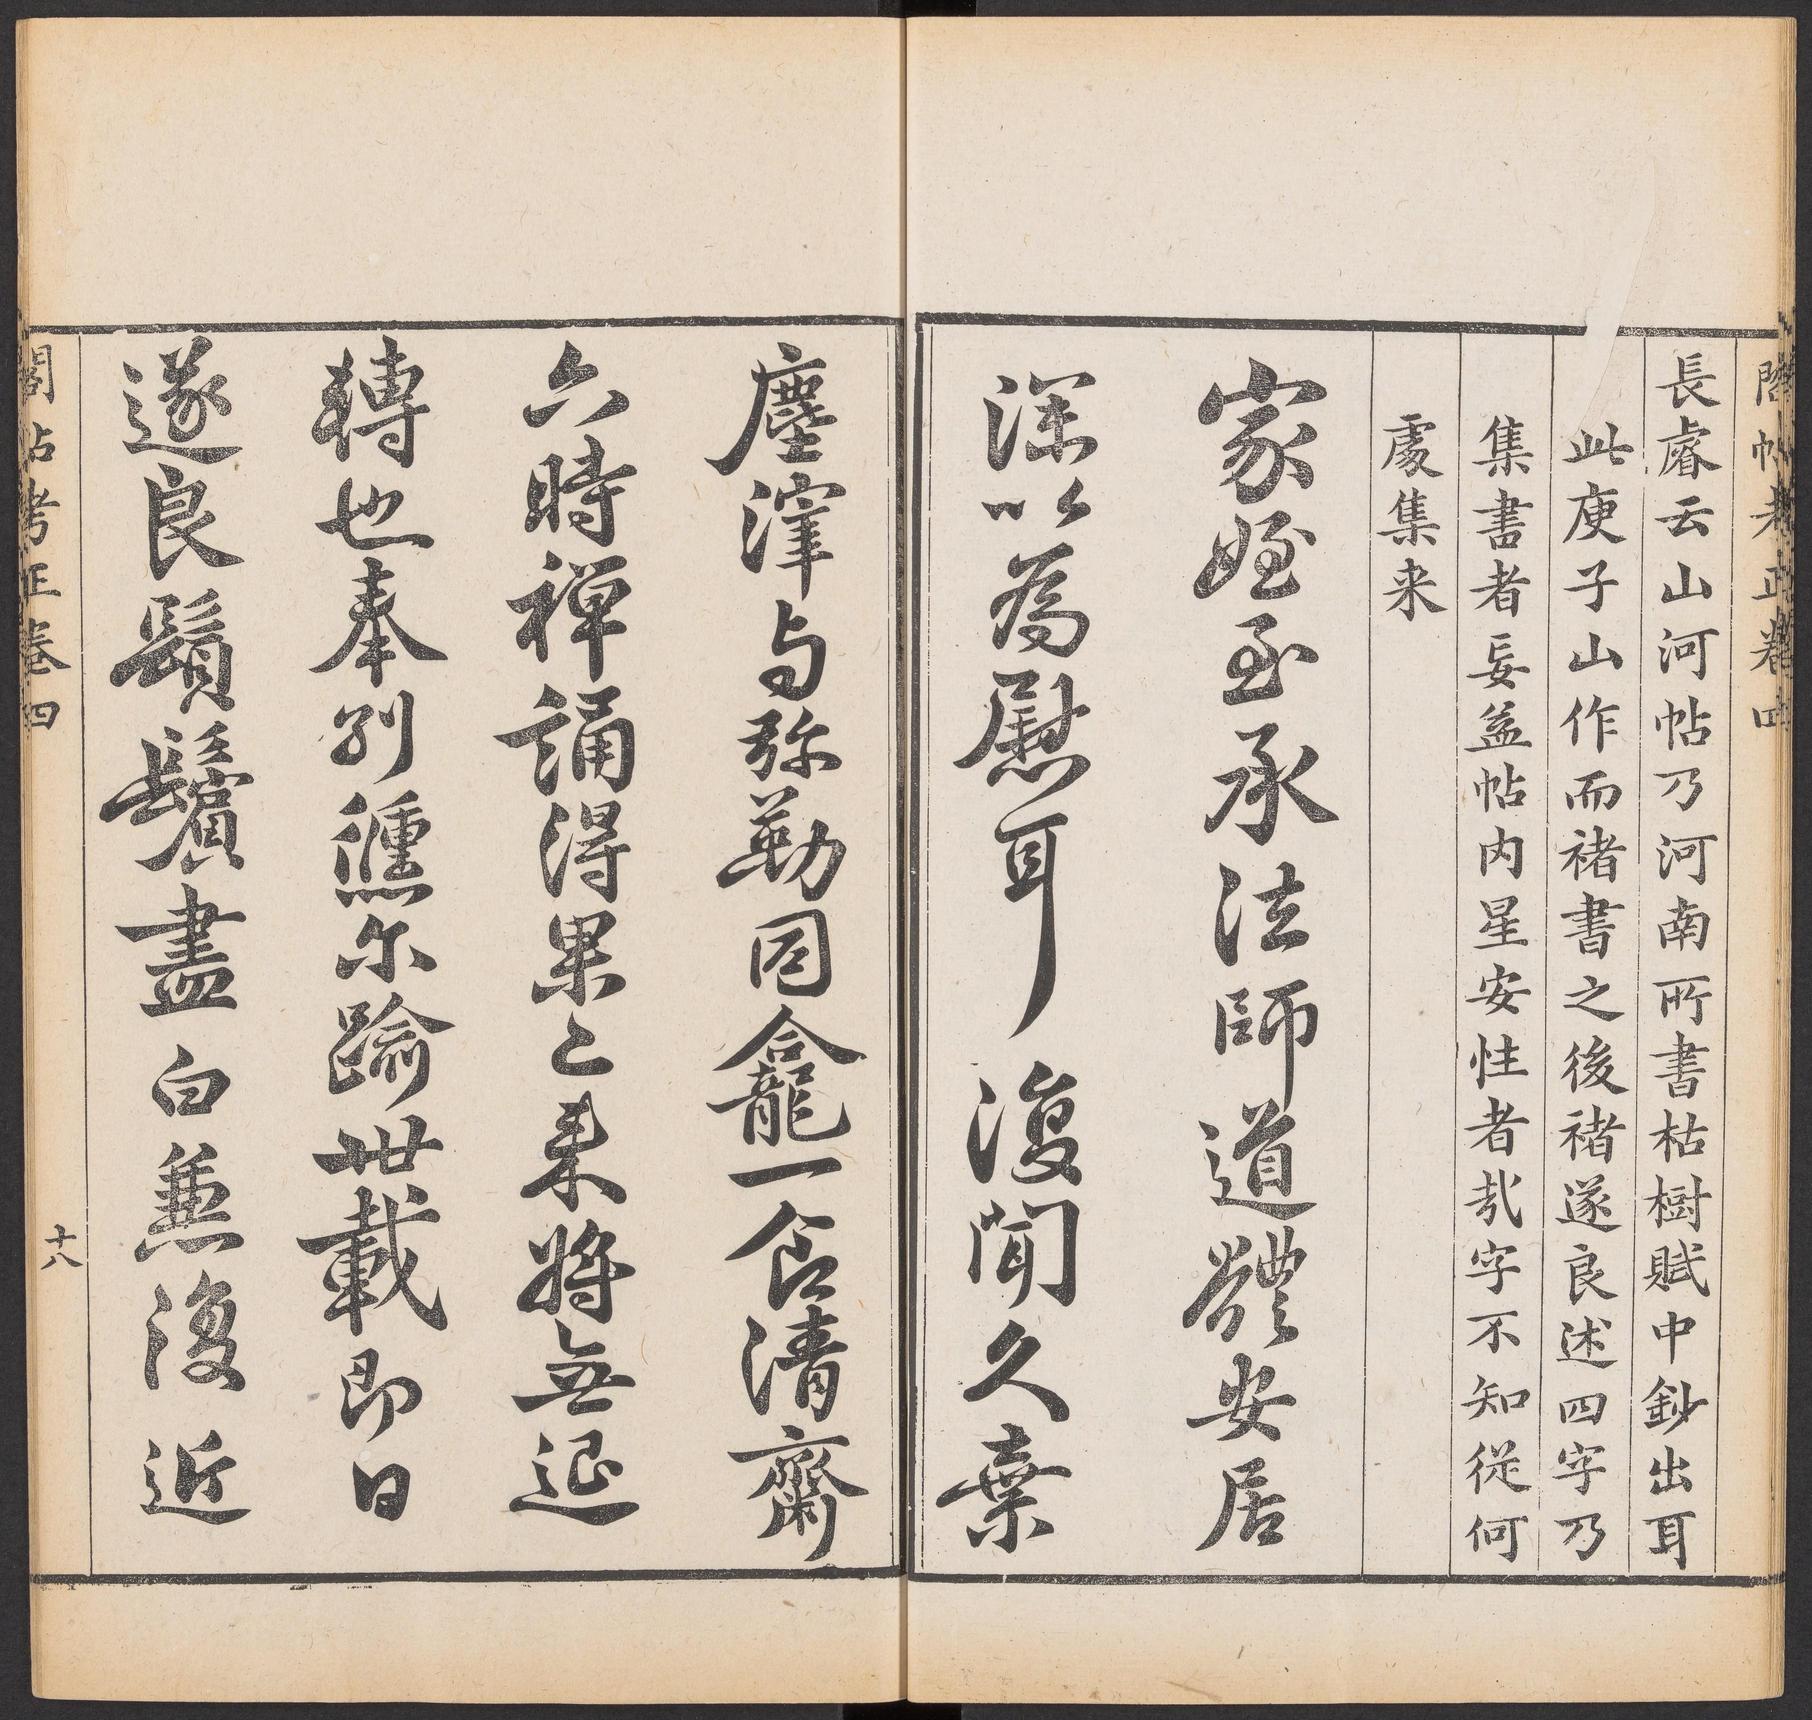 閣帖考正卷四
長睿云山河帖乃河南所書枯樹賦中鈔出耳
此庾子山作而褚書之後褚遂良述四字乃
集書者妄益帖内星安性者哉字不知從何
處集来
家姪至承法師道體安居
深以為慰耳復聞久棄
塵滓与弥勒同龕一食清齋
六時禅誦得果已来將無退
轉也奉別儵尓踰卅載即日
遂良鬚鬢盡白兼復近
閣帖考正卷四
十八